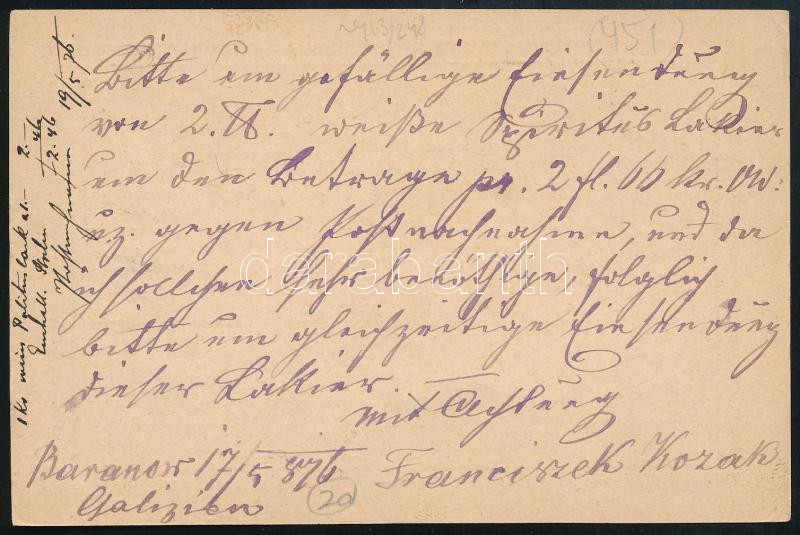 (451)
Bitte um gefällige Einsendung
von 2. ℔. weiße Spiritus Lakier
um den Betrage pr. 2 fl. 66 kr. OW:
uz. gegen Postnachnahme, und da
ich sollchen sehr benöthige, folglich
bitte um gleichzeitige Einsendung
dieser Lakier. —
Mit Achtung
Baranow 17/5 876 Franciszek Kozak
Galizien
20
2.—
Emball. 46
2.46
19/5 76.
darabanth